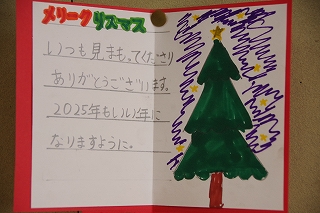 メリークリスマス
いつも見まもってくださり
ありがとうございます。
2025年もいい年に
なりますように。